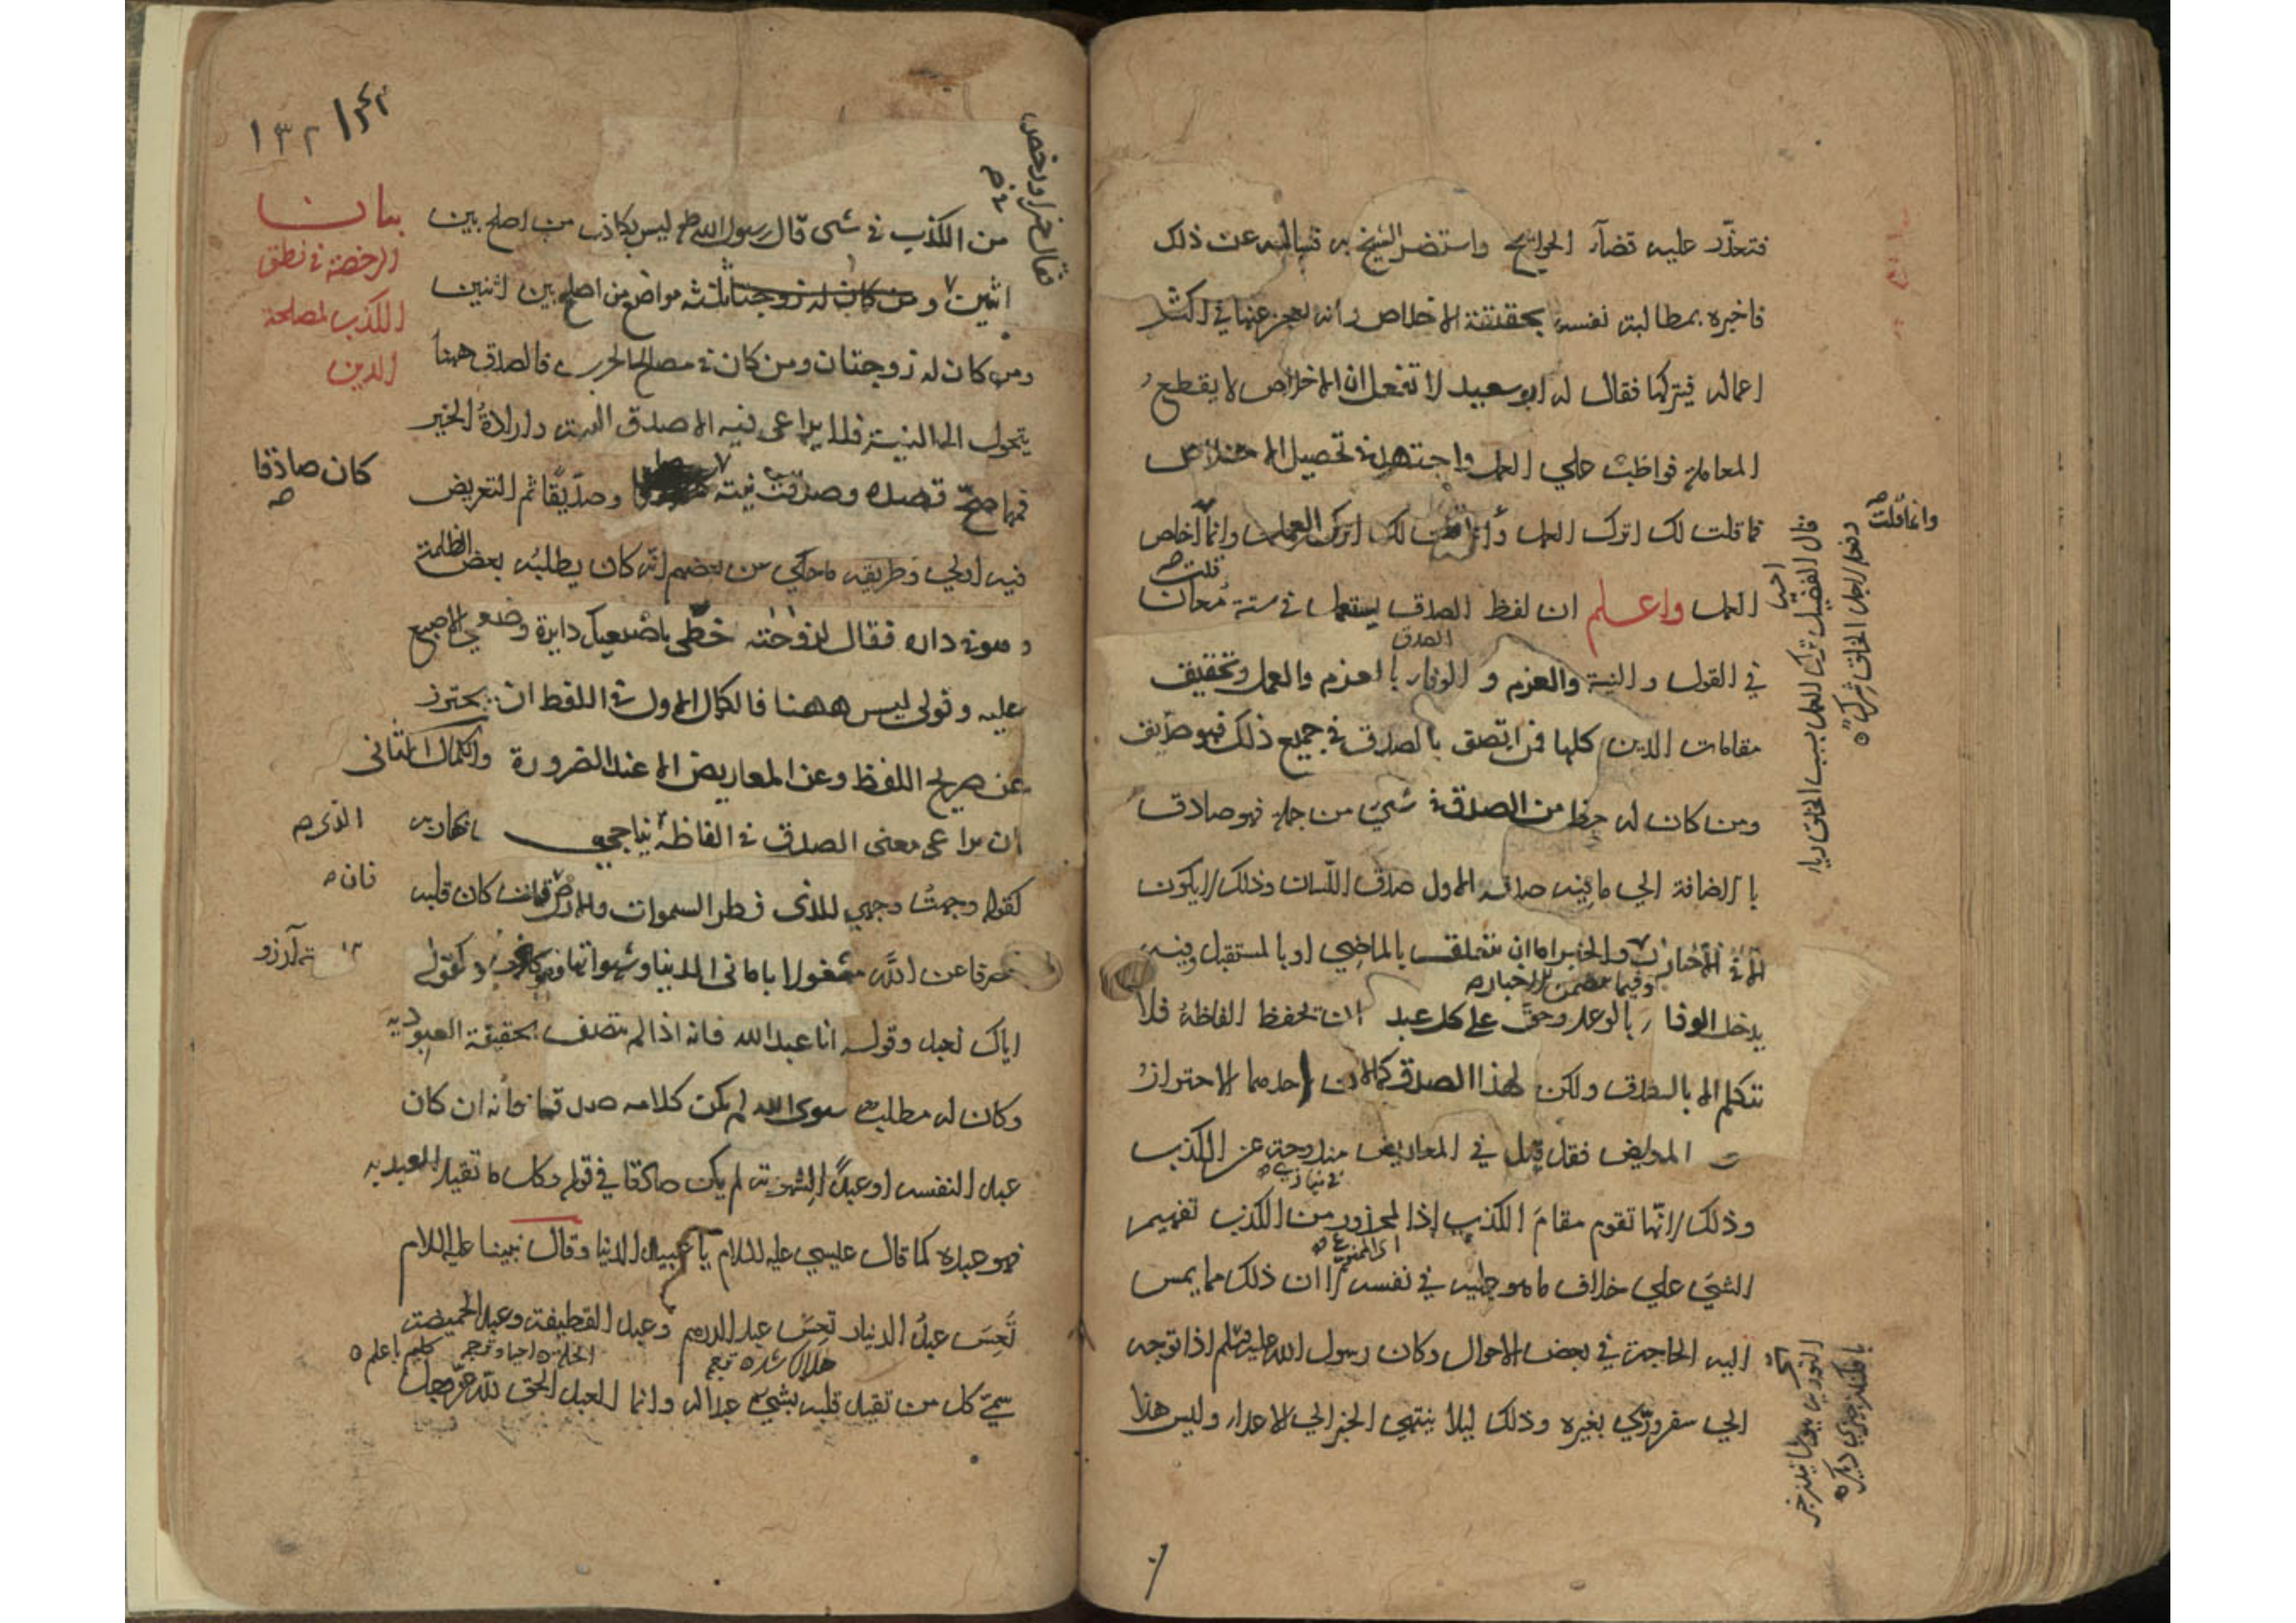 فتعذّر عليه قضآء الحوائج واستضر الشيخ به فسأله عن ذلك
فاخبره بمطالبته نفسه بحقيقة الاخلاص وانه يعجز عنها في اكثر
اعماله فيتركها فقال له ابو سعيد لا تفعل ان الاخلاص لا يقطع
المعاملة فواظب علي العمل واجتهد في تحصيل الاخلاص
فما قلت لك اترك العمل وانما قلت لك اخلص
وانما قلت
العمل واعلم ان لفظ الصدق يستعمل في ستة معان
في القول والنية والعزم و الوفاء بالعزم والعمل وتحقيق
الصدق
مقامات الدين كلها فمن اتصف بالصدق في جميع ذلك فهو صدّيق
ومن كان له حظ من الصدق في شيء من جملة فهو صادق
با الضافة الي ما فيه صدقه الاول صدق اللسان وذلك لا يكون
الا في الاخبار والخبر اما ان يتعلق بالماضي او بالمستقبل وفيه
يدخل الوفاء بالوعد وحقّ علي كل عبد ان يحفظ الفاظه فلا
يتكلم الا بالصدق ولكن لهذا الصدق كمالان احدهما الاحتراز
المعاريض فقد قيل في المعاريض مندوحة عن الكذب
وذلك لانّها تقوم مقام الكذب إذا المحزور من الكذب تفهيم
اى الممنوع
الشيء علي خلاف ما هو عليه في نفسه الا ان ذلك مما يمس
اليه الحاجة في بعض الاحوال وكان رسول الله عليه وسلم اذا توجه
الي سفر ورّي بغيره وذلك ليلا ينتهي الخبر الي الاعداء وليس هذا
قال الفضيل ترك العمل بسبب الخلق رياء
وفعله لاجل الخلق شرك
١٣٢
بيان
الرخصة في نطق
الكذب لمصلحة
الدين
من الكذب في شى قال رسول الله ليس بكاذب من اصلح بين
اثنين و من كان له زوجتا ثلثه مواضع من اصلح بين اثنين
ومن كان له زوجتان ومن كان في مصالح الحرب فالصدق ههنا
يتحول الى النية فلا يراعى فيه الا صدق النية وارادة الخير
فمهما صحّ قصده وصدقت نيته وصدّيقًا ثم التعريض
كان صادقا
فيه اولي وطريقه ما حكي عن بعضهم انّه كان يطلبه بعض الظلمة
وهو في داره فقال لزوجته خطّي باصبعيك دايرة وضعي الاصبع
عليه وقولى ليس ههنا فالكمال الاول في اللفظ ان يحترز
عن صريح اللفظ وعن المعاريض الا عند الضرورة والكمال الثانى
ان يراعى معنى الصدق في الفاظه يناجي بها ربه
الذى
كقوله وجهتُ وجهي للذى فطر السموات والارض فان كان قلبه
فان
منصرفا عن اللّه مشغولا بامانى الدنيا وشهواتها فهو كاذب وكقوله
اياك نعبد وقوله انا عبد الله فانه اذا لم يتصف بحقيقة العبودية
وكان له مطلب سوى الله لم يكن كلامه صدقا فانه ان كان
عبد النفسه او عبدًا لشهوته لم يكن صادقا في قوله وكل ما تقيد العبد به
فهو عبده كما قال عيسي عليه السلام يا عبيد الدنيا وقال نبينا عليه السلام
تَعِسَ عبدُ الدينار تعِسَ عبد الدرهم وعبد القطيفة وعبد الخميصة
هلاك شده
سمّى كل من تقيد قلبه بشيء عبدا له وانما العبد الحق للّه عزّ وجل